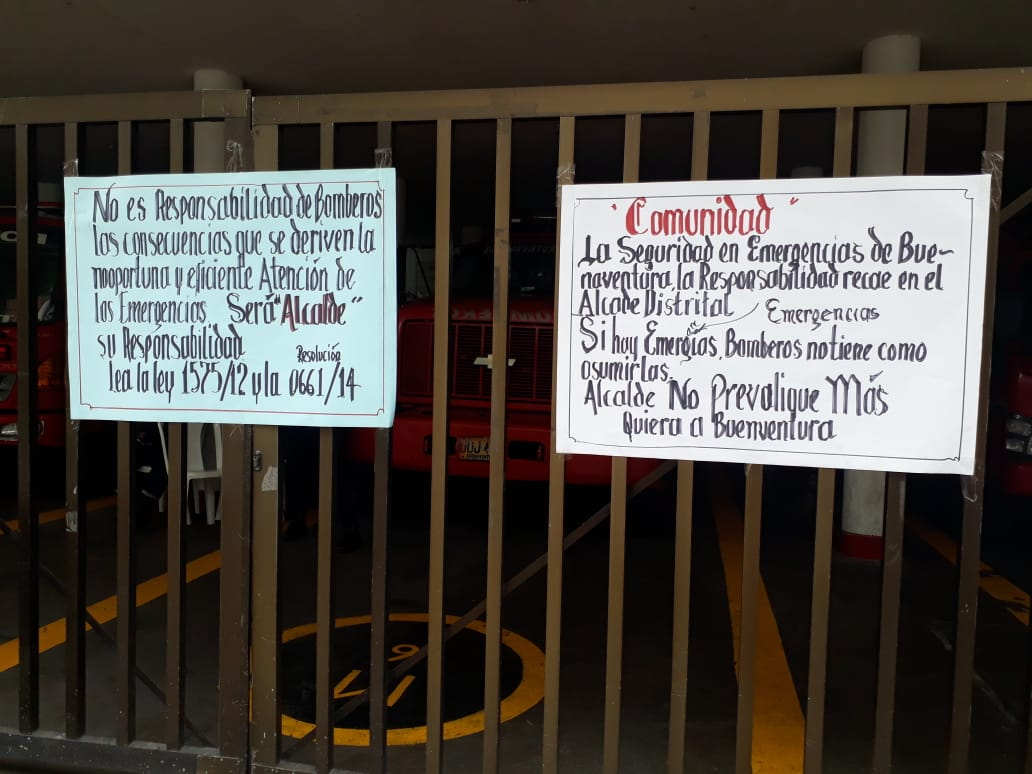 No es Responsabilidad de Bomberos
las consecuencias que se deriven la
nooportuna y eficiente Atención de
las Emergencias. Será "Alcalde"
su Responsabilidad
Resolución
Lea la ley 1575/12 y la 0661/14
"Comunidad"
La Seguridad en Emergencias de Bue-
naventura, la Responsabilidad recae en el
Alcade Distrital
Emergencias
Si hay Emergias, Bomberos no tiene como
asumirlas.
Alcalde No Prevalique Más
Quiera a Buenventura